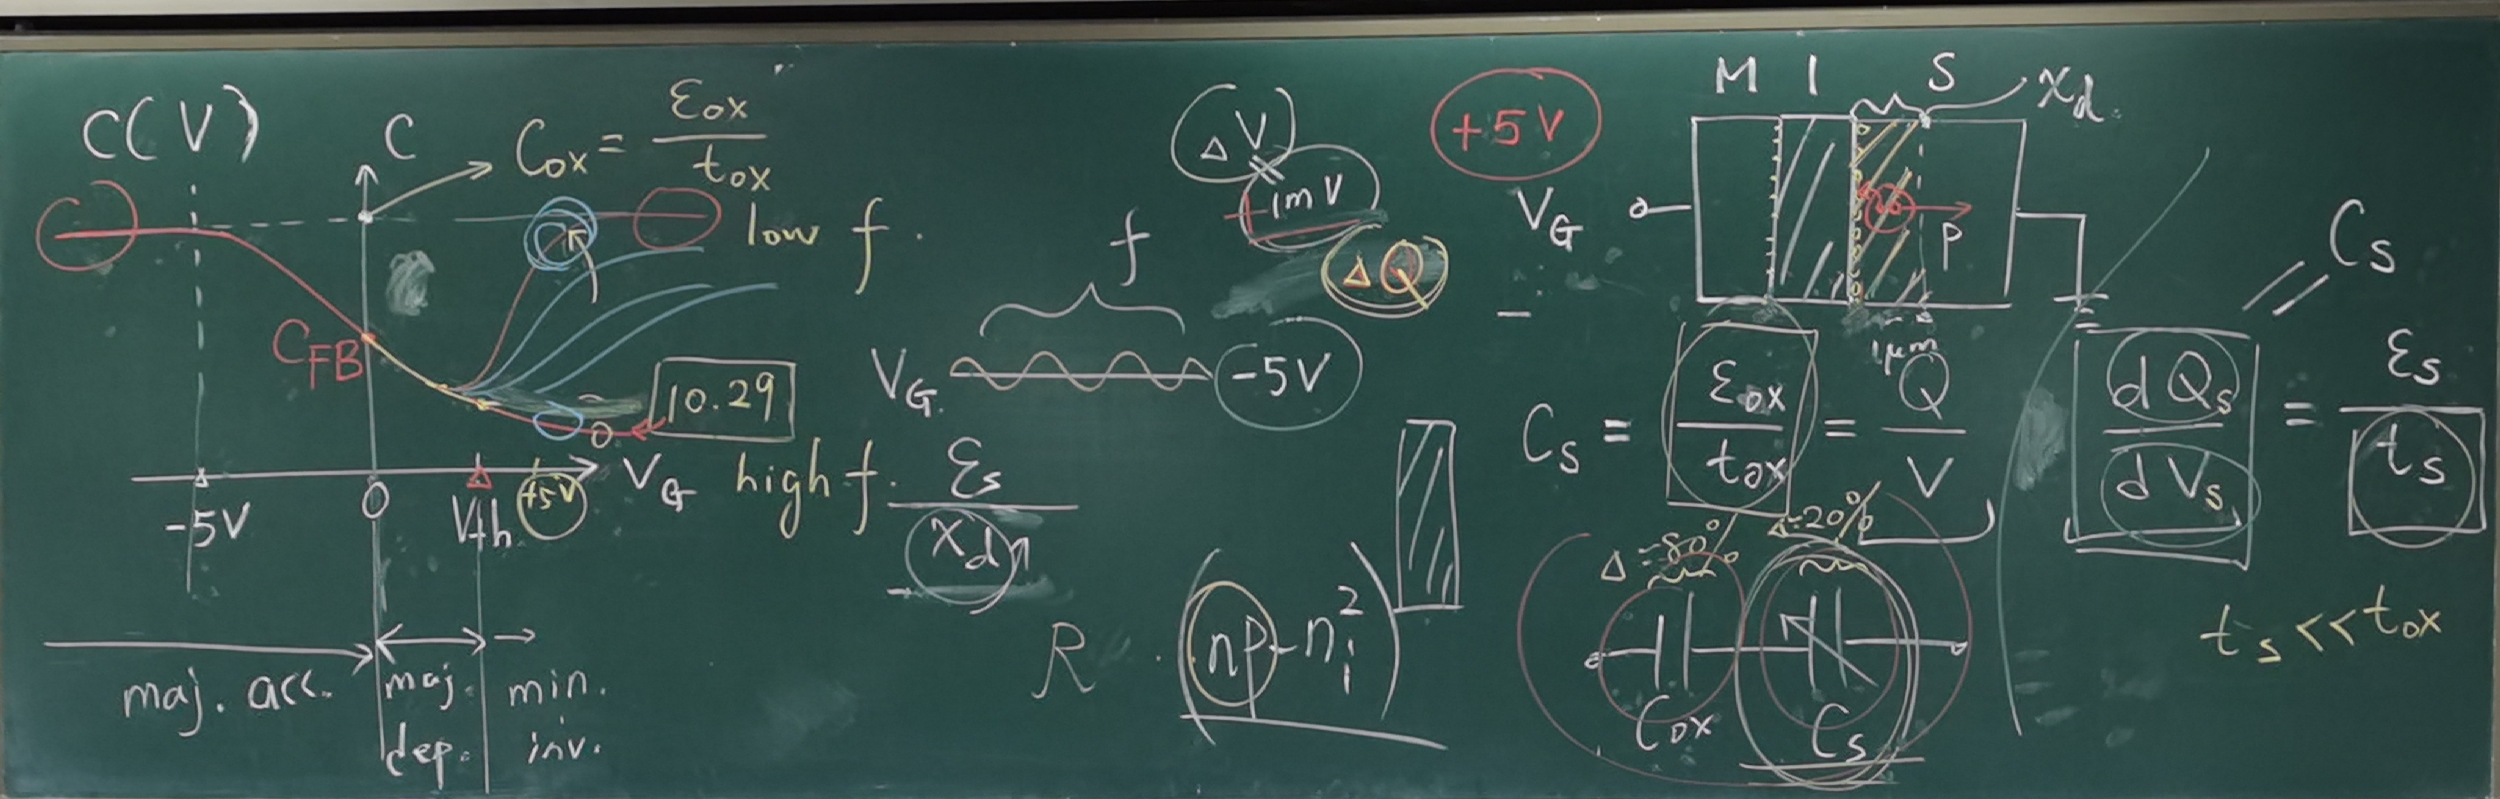 C(V)
C
Cox = εox / tox
low f.
CFB
10.29
VG
high f.
-5V
0
Vth
+5V
maj. acc.
maj. dep.
min. inv.
εs / xd↑
ΔV
1mV
ΔQ
f
VG
-5V
R · (np - ni²)
+5V
M I S
xd
VG
P
1μm
Cs = εox / tox = Q / V
Δ=80%
Δ=20%
Cox
Cs
Cs
dQs / dVs = εs / ts
ts << tox